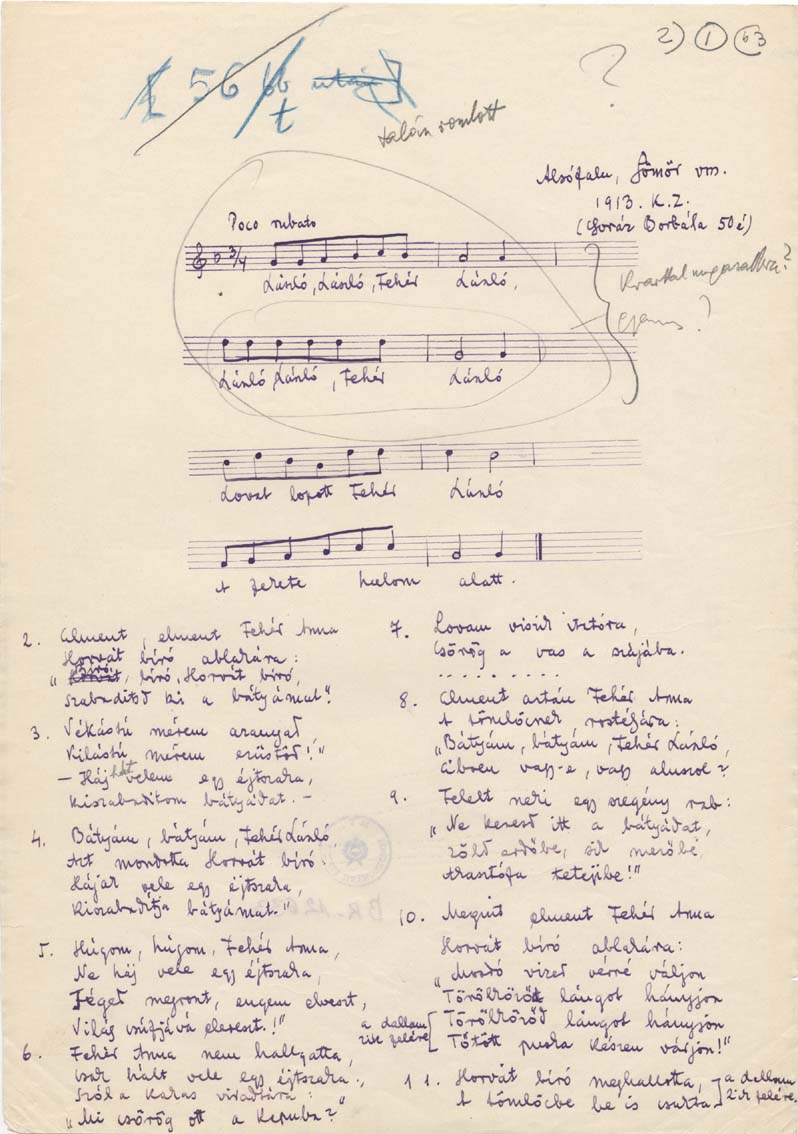 2) 1 63
56 66 után]
t
?
talán romlott
Alsófalu, Gömör vm.
1913. K. Z.
(Horváz Borbála 50 é)
Poco rubato
3/4
László, László, Fehér László,
?
László László, Fehér László
?
Lovat lopott Fehér László
A fekete halom alatt.
2. Elment, elment Fehér Anna
Horvát bíró ablakára:
„Bíró, bíró, Horvát bíró,
Szabadítsd ki a bátyámat".
3. Vékástú mérem aranyad,
Kilástú mérem ezüstöd!"
– Háj hát velem egy éjtszaka,
Kiszabadítom bátyádat. –
4. Bátyám, bátyám, Fehér László
Azt mondotta Horvát bíró:
Hájak vele egy éjtszaka,
Kiszabadítja bátyámat."
5. Húgom, húgom, Fehér Anna,
Ne háj vele egy éjtszaka,
Téged megront, engem elveszt,
Világ csúfjává elereszt.!"
6. Fehér Anna nem hallgatta,
Csak hált vele egy éjtszaka:,
Szól a kakas viradtára:
„Mi csörög ott a kapuba?"
7. Lovam viszik itatóra,
Csörög a vas a szájába.
. . . . . . . . . .
8. Elment aztán Fehér Anna
A tömlöcnek rostéjára:
„Bátyám, bátyám, Fehér László,
Ébren vagy-e, vagy aluszol?
9. Felelt neki egy szegény rab:
„Ne keresd itt a bátyádat,
Zöld erdőbe, sík mezőbe,
Akasztófa tetejibe!"
10. Megint elment Fehér Anna
Horvát bíró ablakára:
„Mosdó vized vérré váljon
Törölköződ lángot hányjon
a dallam 2ik felére [Törölköződ lángot hányjon
Tőtött puska készen várjon!"
11. Horvát bíró meghallotta,
A tömlöcbe be is csukta.
] a dallam 2ik felére.
BR-